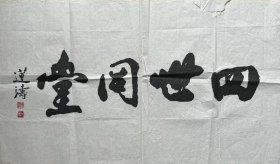 四世同堂
道涛